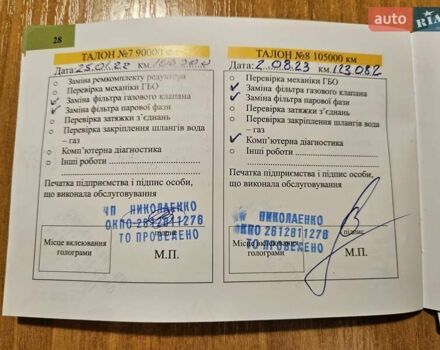 auto RIA
28
ТАЛОН №7 90000
Дата: 25.01.22 км.
Заміна ремкомплекту редуктора
Перевірка механіки ГБО
Заміна фільтра газового клапана
Заміна фільтра парової фази
Перевірка затяжки з'єднань
Перевірка закріплення шлангів вода
– газ
Комп'ютерна діагностика
Інші роботи
Печатка підприємства і підпис особи,
що виконала обслуговування
ЧП НИКОЛАЕНКО
ОКПО 2612811276
ТО ПРОВЕДЕНО
підпис
Місце вклеювання
голограми
М.П.
ТАЛОН №8 105000 км
Дата: 2.08.23 км. 123082
Перевірка механіки ГБО
Заміна фільтра газового клапана
Заміна фільтра парової фази
Перевірка затяжки з'єднань
Перевірка закріплення шлангів вода
– газ
Комп'ютерна діагностика
Інші роботи
Печатка підприємства і підпис особи,
що виконала обслуговування
НИКОЛАЕНКО
ОКПО 2612811276
ТО ПРОВЕДЕНО
підпис
Місце вклеювання
голограми
М.П.